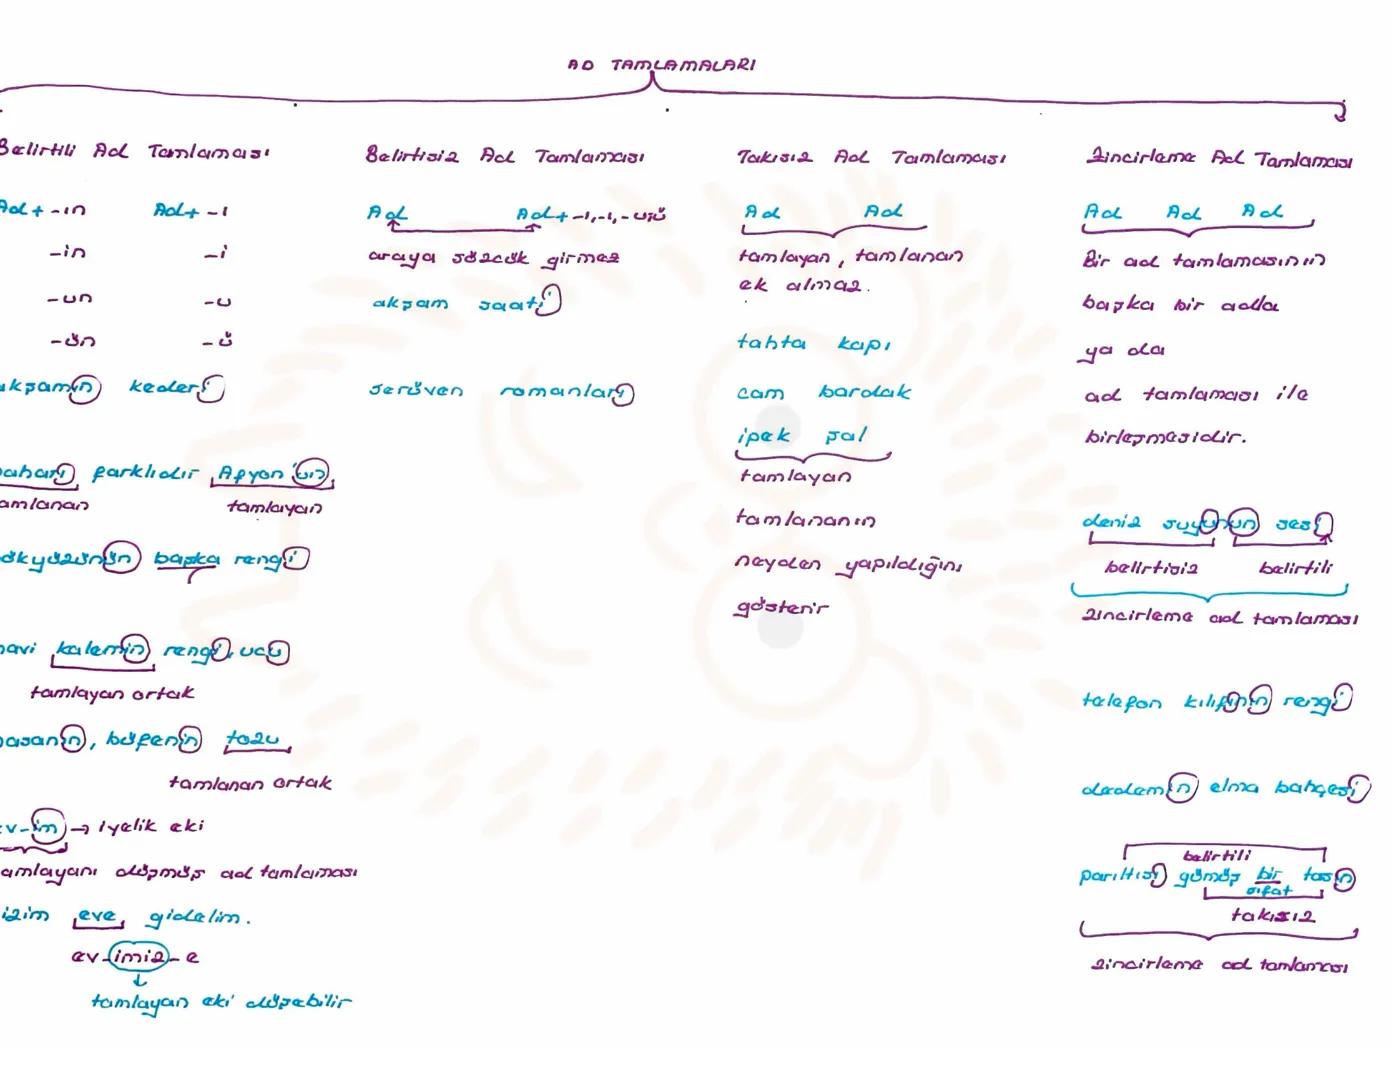 AD TAMLAMALARI
Belirtili Ad Tamlaması
Ad+ -ın Ad+ -ı
-in -i
-un -u
-ün -ü
akşamın kederi
baharı farklıdır Afyon'un
tamlanan tamlayan
gökyüzünün başka rengi
mavi kalemin rengi, ucu
tamlayan ortak
masanın, büfenin tozu
tamlanan ortak
ev-im → iyelik eki
tamlayanı düşmüş ad tamlaması
bizim eve gidelim.
ev-imiz-e
tamlayan eki düşebilir
Belirtisiz Ad Tamlaması
Ad Ad+ -ı,-i,-u,ü
araya sözcük girmez
akşam saati
serüven romanları
Takısız Ad Tamlaması
Ad Ad
tamlayan, tamlanan
ek almaz.
tahta kapı
cam bardak
ipek şal
tamlayan
tamlananın
neyden yapıldığını
gösterir
Zincirleme Ad Tamlaması
Ad Ad Ad
Bir ad tamlamasının
başka bir adla
ya da
ad tamlaması ile
birleşmesidir.
deniz suyunun sesi
belirtisiz belirtili
zincirleme ad tamlaması
telefon kılıfının rengi
dedemin elma bahçesi
belirtili
parıltısı gümüş bir tasın
sıfat
takısız
zincirleme ad tamlaması